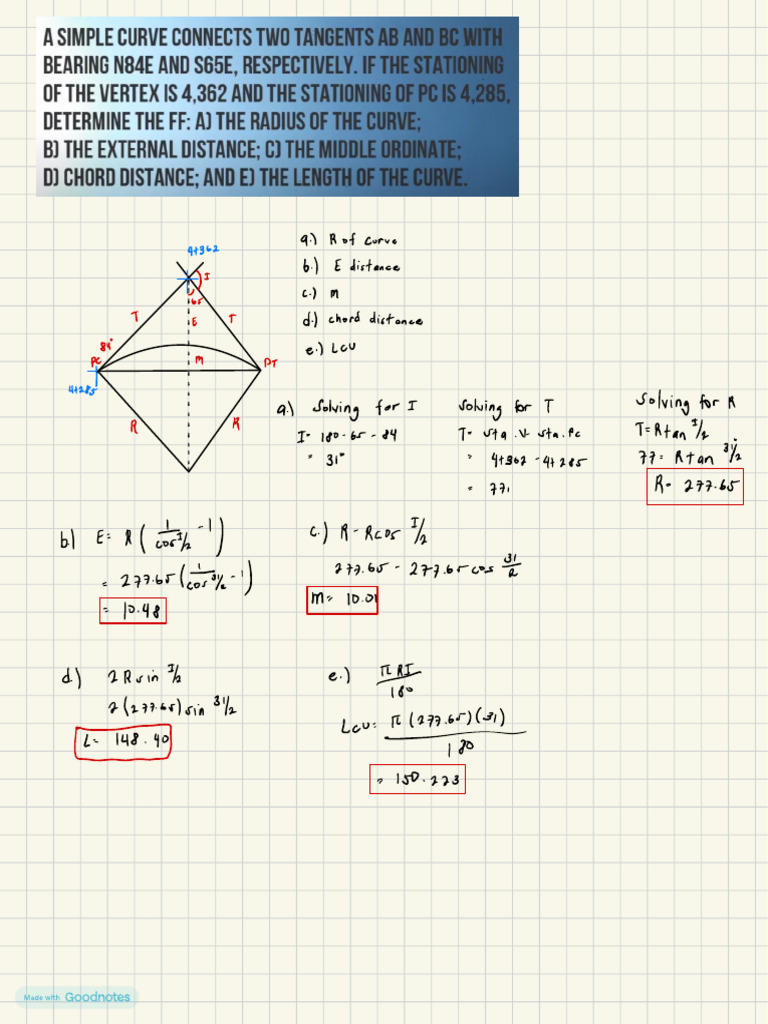 A SIMPLE CURVE CONNECTS TWO TANGENTS AB AND BC WITH
BEARING N84E AND S65E, RESPECTIVELY. IF THE STATIONING
OF THE VERTEX IS 4,362 AND THE STATIONING OF PC IS 4,285,
DETERMINE THE FF: A) THE RADIUS OF THE CURVE;
B) THE EXTERNAL DISTANCE; C) THE MIDDLE ORDINATE;
D) CHORD DISTANCE; AND E) THE LENGTH OF THE CURVE.
4+362
I
65
T
E
T
84°
PC
M
PT
4+285
R
R
a.) R of curve
b.) E distance
c.) M
d.) chord distance
e.) LCU
a.) Solving for I
I = 180-65-84
= 31°
Solving for T
T = sta. V- sta. PC
= 4+362 - 4+285
= 77
Solving for R
T = R tan I/2
77 = R tan 31/2
R = 277.65
b.) E = R ( 1/cos I/2 - 1 )
= 277.65 ( 1/cos 31/2 - 1 )
= 10.48
c.) R - R cos I/2
277.65 - 277.65 cos 31/2
M = 10.01
d.) 2 R sin I/2
2 (277.65) sin 31/2
L = 148.40
e.) π RI
180
LCU = π (277.65) (31)
180
= 150.223
Made with Goodnotes